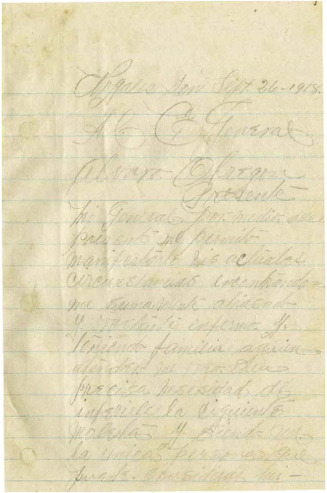 Nogales Son Sept. 26-1918.
Al C. General
Alvaro Obregon
Presente
Mi General por medio de la
presente me permito
manifestarle mis actuales
circunstancias encontrando
me sumamente atrasado
y bastante enfermo y
teniendo familia a quien
me veo en
precisa necesidad de
inferirle la siguiente
molestia y siendo Ud.
la unica persona que
puede